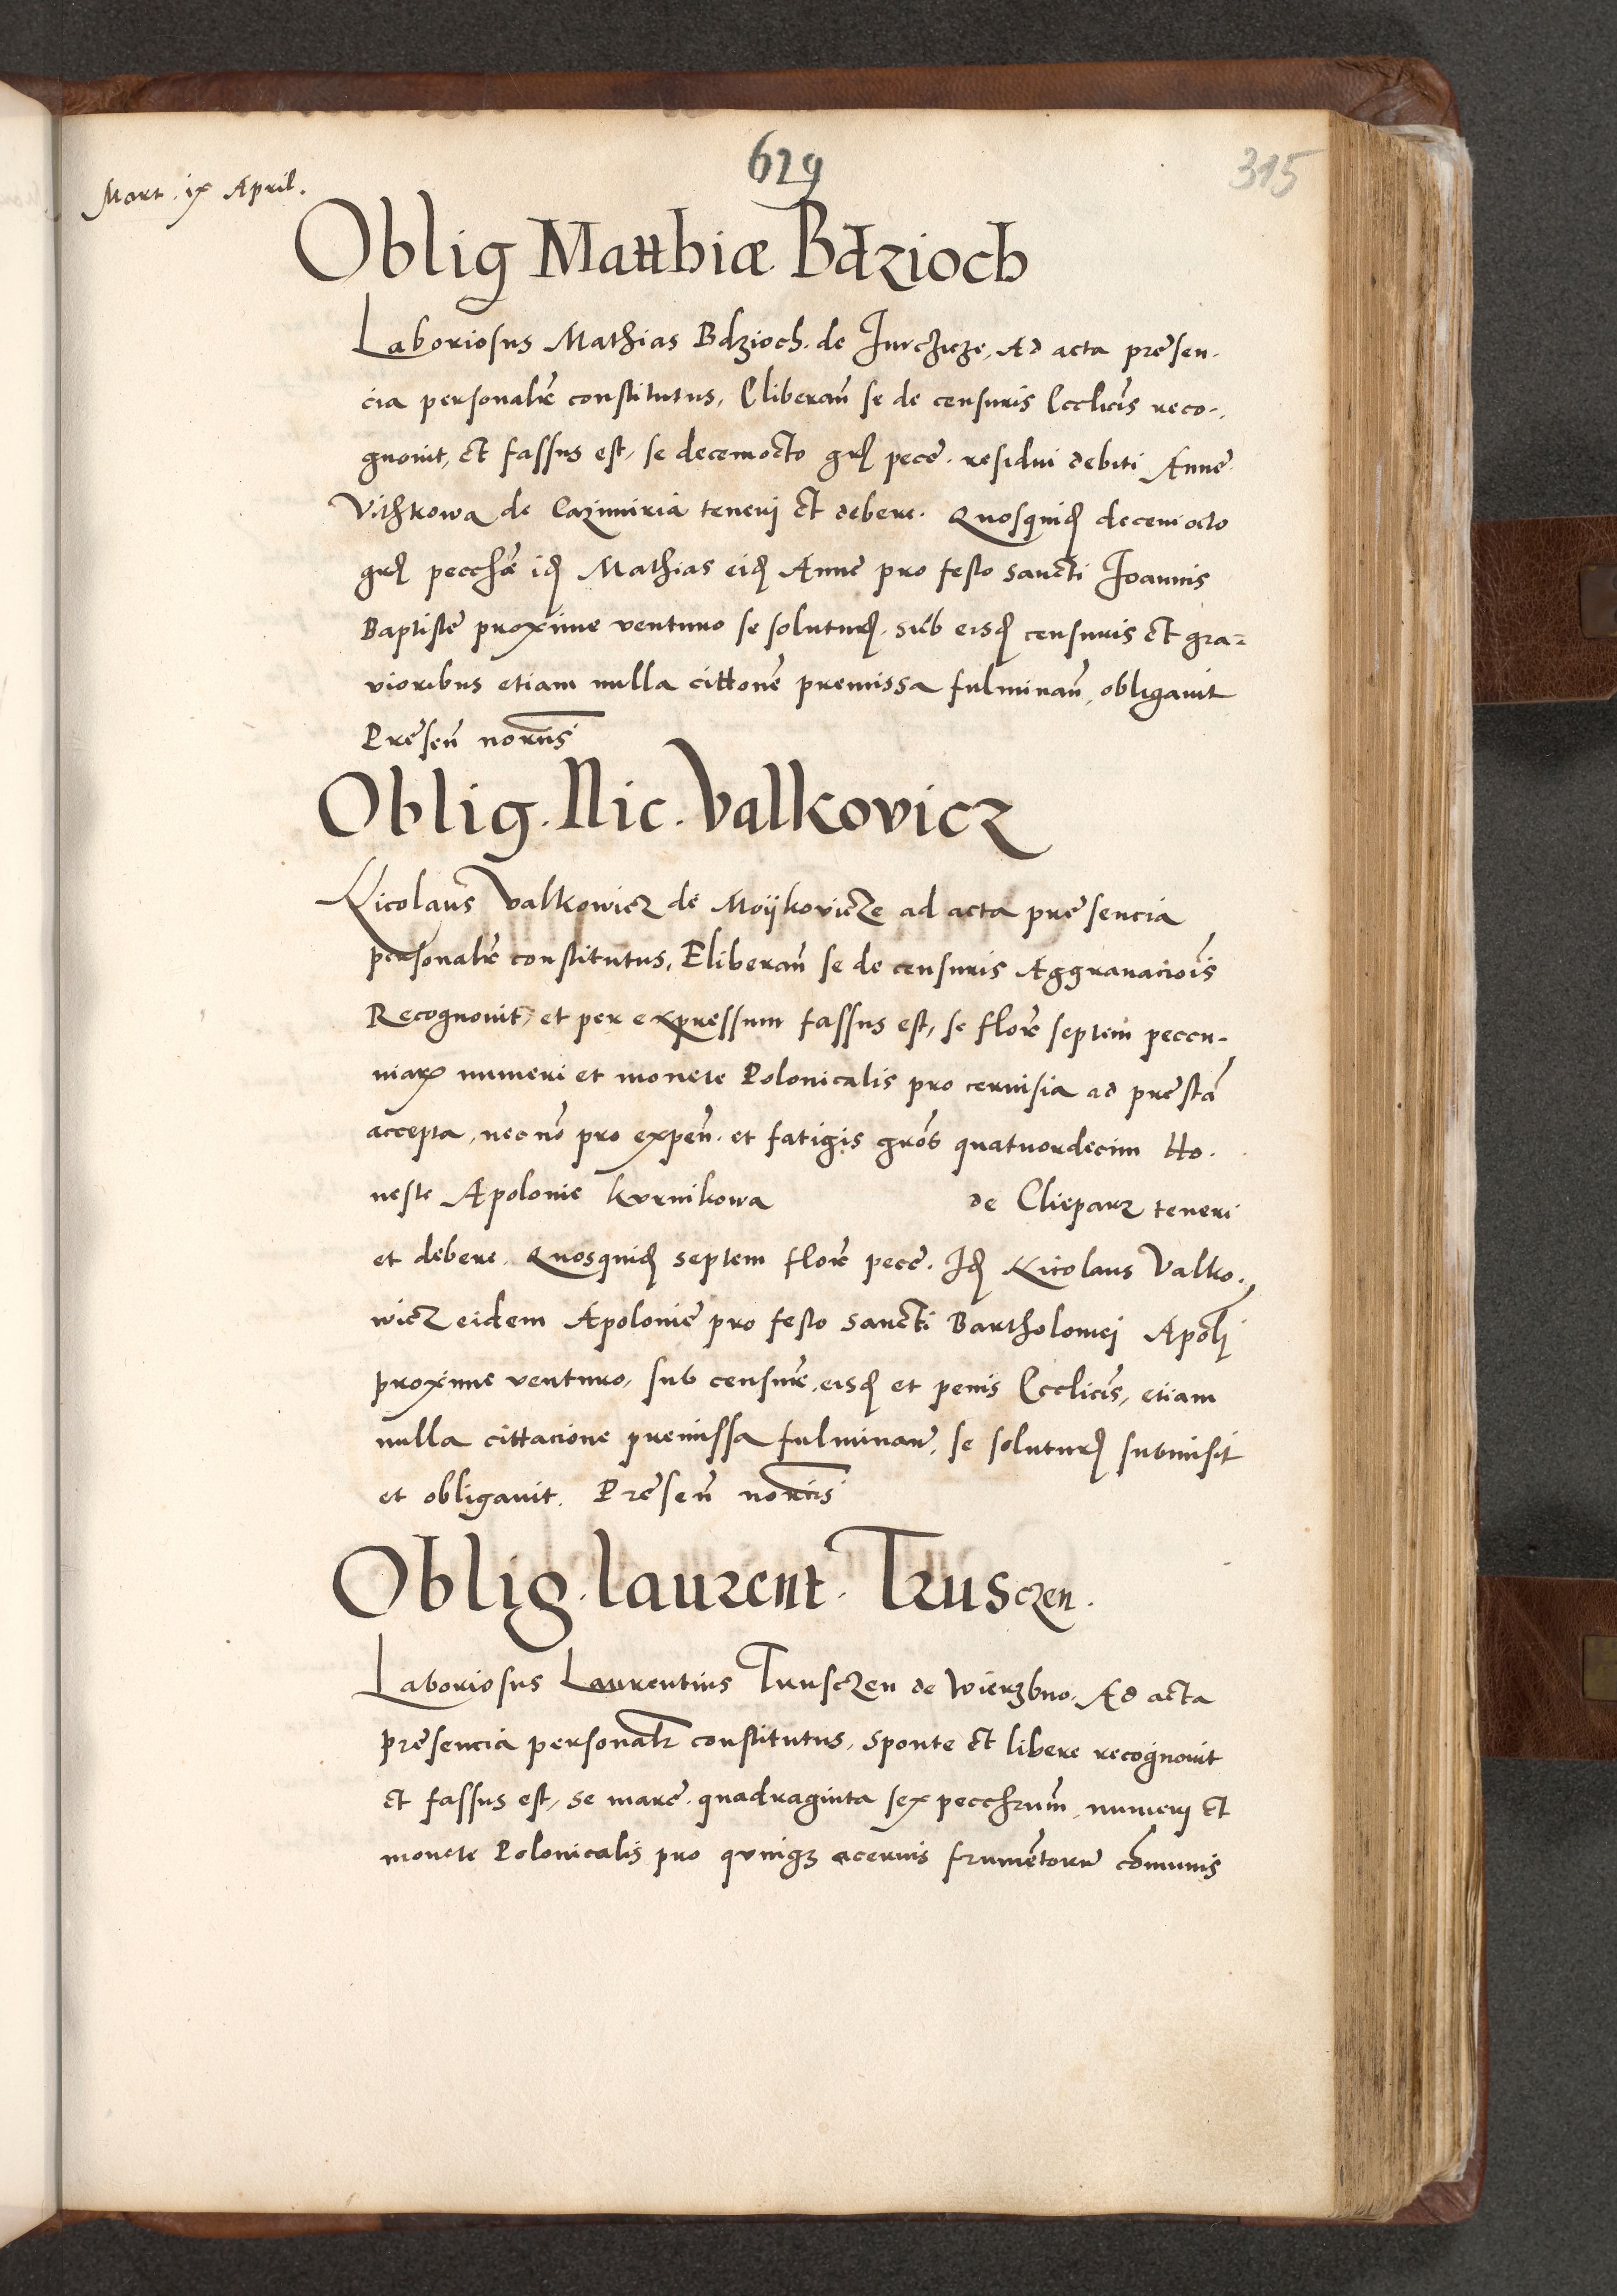 629
315
Mart. ix April.
Oblig Matthiæ Bdzioch
Laboriosus Mathias Bdzioch. de Jurczicze, Ad acta presen-
cia personalr̃e constitutus, Eliberañ se de censuris Ecclicis̃ reco-
gnouit, et fassus est, se decemocto grõs pecc̃. residui debiti Anne
Vithkowa de Cazimiria teneri et debere. Quosquid̃ decem octo
grõs pecch̃e id̃ Mathias eid̃ Anne pro festo Sancti Joannis
Baptiste proxime venturo se soluturũ. sub eisd̃ censuris et gra-
vioribus etiam nulla cittonẽ premissa fulminañ, obligauit
Presen̄ nor̄ns
Oblig. Nic. Valkovicz
Nicolaus Valkowicz de Moijkovicze ad acta presencia
personalr̃e constitutus, Eliberañ se de censuris Aggrauaciois̃
Recognouit, et per expressum fassus est, se florẽ septem peccu-
niarũ numeri et monete Polonicalis pro ceruisia ad prestã
accepta, nec nõ pro expeñ. et fatigis grõs quatuordecim Ho-
neste Apolonie Kurnikowa de Clieparz teneri
et debere. Quosquid̃ septem florẽ pecc̃. Id̃ Nicolaus Valko-
wicz eidem Apolonie pro festo Sancti Bartholomei Apolĩ
proxime venturo, sub censurẽ eisd̃ et penis Ecclicis̃, etiam
nulla cittacione premissa fulminañ, se soluturũ submisit
et obligauit. Presen̄ nor̄iis
Oblig. Laurent. Trusczen.
Laboriosus Laurentius Trusczen de Wierzbno, Ad acta
presencia personalr̃ constitutus, sponte et libere recognouit
et fassus est, se marc̃. quadraginta sex pecchrum̃, numeri et
monete Polonicalis pro quinqz aceruis frumẽtorũ cõmunis